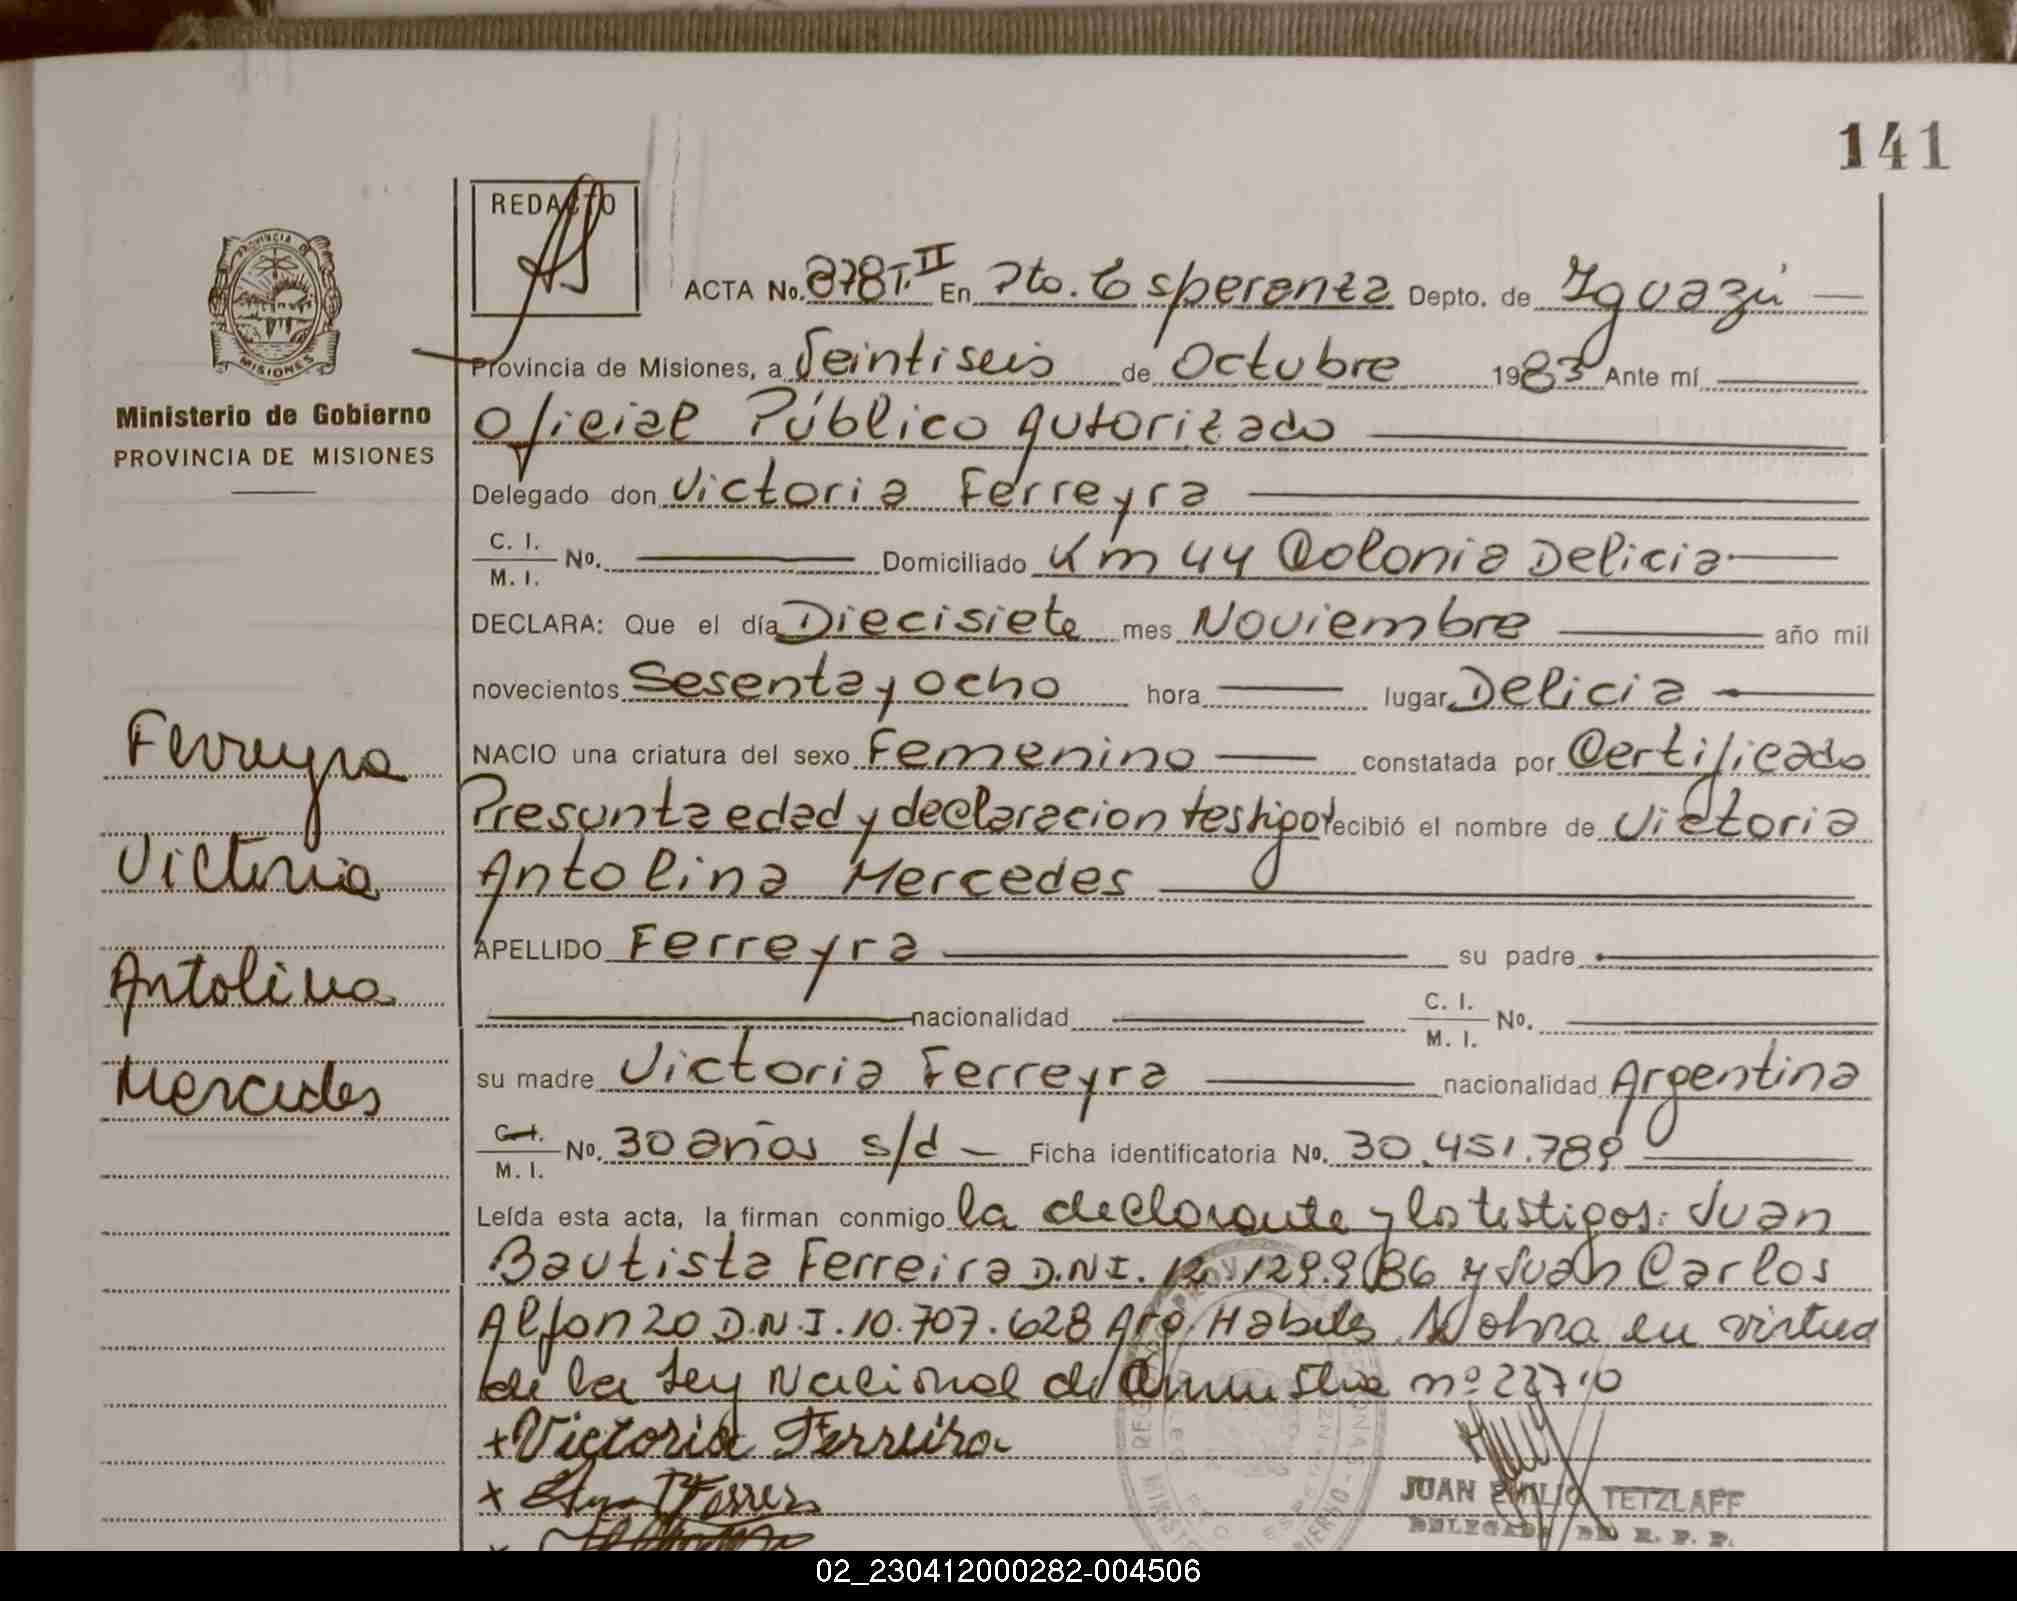 141
REDACTO
ACTA No. 878 T. II En Pto. Esperanza Depto. de Iguazú
Provincia de Misiones, a Veintiseis de Octubre 1983 Ante mí
PROVINCIA DE MISIONES
Ministerio de Gobierno
PROVINCIA DE MISIONES
Oficial Público Autorizado
Delegado don Victoria Ferreyra
C. I. M. I. No. Domiciliado Km 44 Colonia Delicia
DECLARA: Que el día Diecisiete mes Noviembre año mil
novecientos Sesenta y ocho hora lugar Delicia
NACIO una criatura del sexo Femenino constatada por Certificado
Presunta edad y declaracion testigo recibió el nombre de Victoria
Antolina Mercedes
APELLIDO Ferreyra su padre
nacionalidad C. I. M. I. No.
su madre Victoria Ferreyra nacionalidad Argentina
C. I. M. I. No. 30 años s/d Ficha identificatoria No. 30.451.789
Leída esta acta, la firman conmigo la declarante y los testigos: Juan
Bautista Ferreira D.N.I. 12.129.986 y Juan Carlos
Alfonzo D.N.I. 10.707.628 Arg. Habiles. N obra en virtud
de la Ley Nacional de Amnistia nº 22710
x Victoria Ferreira
x
x
JUAN EMILIO TETZLAFF
DELEGADO DE R. P. P.
Ferreyra
Victoria
Antolina
Mercedes
02_230412000282-004506